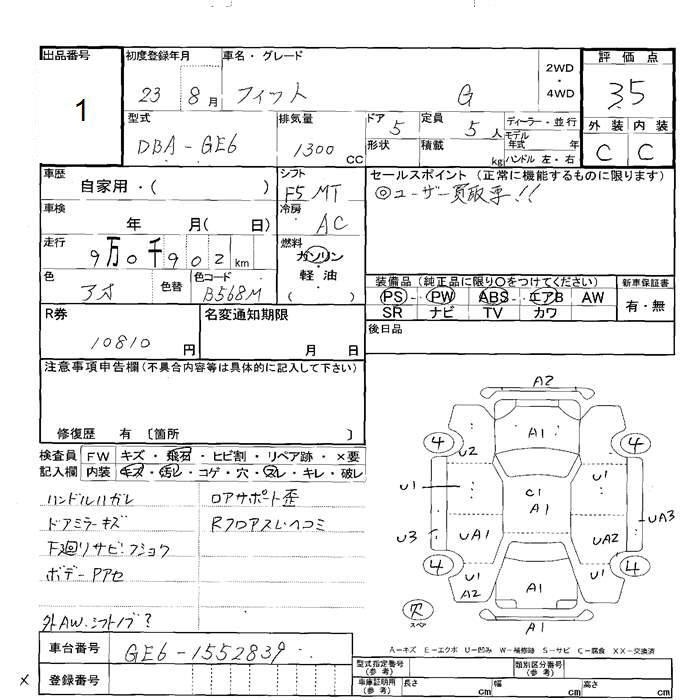 出品番号 初度登録年月 車名・グレード 2WD・4WD 評価点
1 23 8月 フィット G 3.5
型式 排気量 ドア 5 定員 5人 ディーラー・並行 外装 内装
DBA-GE6 1300 CC 形状 積載 kg モデル年式 年 ハンドル 左・右 C C
車歴 シフト セールスポイント (正常に機能するものに限ります)
自家用・( ) F5 MT ◎ユーザー買取車!!
車検 年 月( 日) 冷房 AC
走行 9万0千902km 燃料 ガソリン
軽油
( )
色 アオ 色替 色コード B568M
装備品 (純正品に限り○をつけてください) 新車保証書
PS PW ABS エアB AW 有・無
SR ナビ TV カワ
R券 10810円 名変通知期限 月 日 後日品
注意事項申告欄(不具合内容等は具体的に記入して下さい)
修復歴 有 〔箇所 〕
検査員 FW キズ・飛石・ヒビ割・リペア跡・×要
記入欄 内装 キズ・汚レ・コゲ・穴・スレ・キレ・破レ
ハンドルハガレ ロアサポート歪
ドアミラーキズ Rフロアスレヘコミ
下廻リサビ・フショク
ボデーPアセ
外AW.シフトノブ?
A2
4 A1 4
U2 U1
U1 C1
A1 UA3
U3 UA1 UA2
4 U1 A1 U1 4
A2
欠 スペア A1
A-キズ E-エクボ U-凹み W-補修跡 S-サビ C-腐食 XX-交換済
車台番号 GE6-1552839
× 登録番号
型式指定番号(参考) 類別区分番号(参考)
車庫証明用(参考) 長さ cm 幅 cm 高さ cm